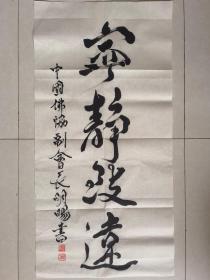 寧靜致遠
中國佛協副會長明暘書